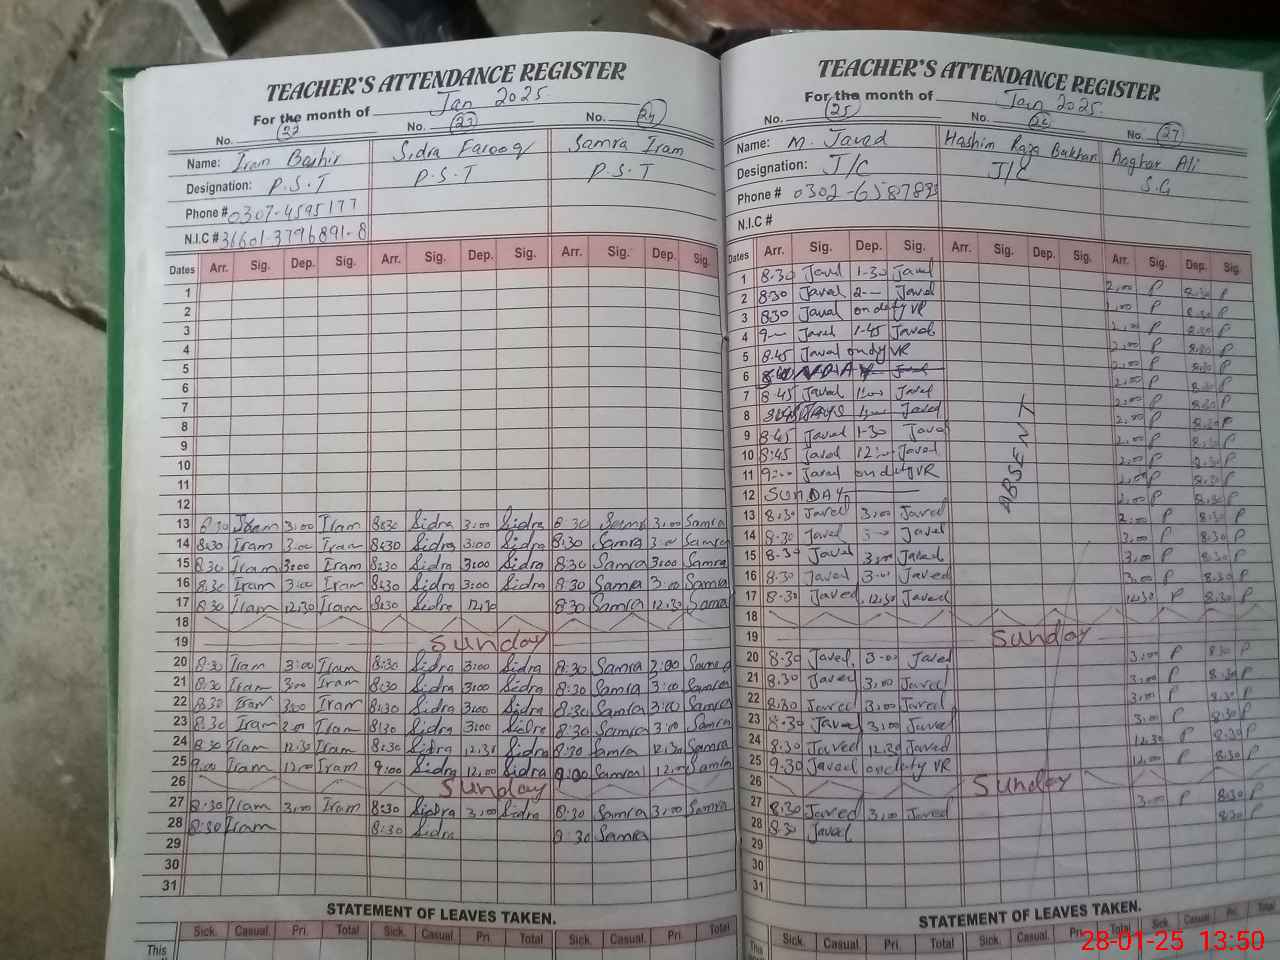 TEACHER'S ATTENDANCE REGISTER
For the month of Jan 2025.
No. 22 No. 23 No. 24
Name: Iram Bashir Sidra Farooq Samra Iram
Designation: P.S.T P.S.T P.S.T
Phone # 0307-4595177
N.I.C # 36601-3796891-8
Dates Arr. Sig. Dep. Sig. Arr. Sig. Dep. Sig. Arr. Sig. Dep. Sig.
1
2
3
4
5
6
7
8
9
10
11
12
13 8:30 Iram 3:00 Iram 8:30 Sidra 3:00 Sidra 8:30 Samra 3:00 Samra
14 8:30 Iram 3:00 Iram 8:30 Sidra 3:00 Sidra 8:30 Samra 3:00 Samra
15 8:30 Iram 3:00 Iram 8:30 Sidra 3:00 Sidra 8:30 Samra 3:00 Samra
16 8:30 Iram 3:00 Iram 8:30 Sidra 3:00 Sidra 8:30 Samra 3:00 Samra
17 8:30 Iram 12.30 Iram 8:30 Sidra 12.30 8:30 Samra 12.30 Samra
18
19 Sunday
20 8:30 Iram 3:00 Iram 8:30 Sidra 3:00 Sidra 8:30 Samra 3:00 Samra
21 8:30 Iram 3:00 Iram 8:30 Sidra 3:00 Sidra 8:30 Samra 3:00 Samra
22 8:30 Iram 3:00 Iram 8:30 Sidra 3:00 Sidra 8:30 Samra 3:00 Samra
23 8:30 Iram 3:00 Iram 8:30 Sidra 3:00 Sidra 8:30 Samra 3:00 Samra
24 8:30 Iram 12.30 Iram 8:30 Sidra 12.30 Sidra 8:30 Samra 12.30 Samra
25 9:00 Iram 12:00 Iram 9:00 Sidra 12:00 Sidra 9:00 Samra 12:00 Samra
26 Sunday
27 8:30 Iram 3:00 Iram 8:30 Sidra 3:00 Sidra 8:30 Samra 3:00 Samra
28 8:30 Iram 8:30 Sidra 8:30 Samra
29
30
31
STATEMENT OF LEAVES TAKEN.
Sick. Casual. Pri. Total Sick. Casual. Pri. Total Sick. Casual. Pri. Total
This
TEACHER'S ATTENDANCE REGISTER
For the month of Jan 2025.
No. 25 No. 26 No. 27
Name: M. Javed Hashim Raza Bukhari Asghar Ali
Designation: J/C J/C S.G
Phone # 0302-6587893
N.I.C #
Dates Arr. Sig. Dep. Sig. Arr. Sig. Dep. Sig. Arr. Sig. Dep. Sig.
1 8:30 Javed 1-30 Javed 2:00 P 8:30 P
2 8:30 Javed 2-- Javed 2:00 P 8:30 P
3 8:30 Javed on duty VR 2:00 P 8:30 P
4 9-- Javed 1-45 Javed 2:00 P 8:30 P
5 8.45 Javed on dy VR 2:00 P 8:30 P
6 2:00 P 8:30 P
7 8.45 Javed Javed 2:00 P 8:30 P
8 Javed 2:00 P 8:30 P
9 8.45 Javed 1-30 Javed 2:00 P 8:30 P
10 8:45 Javed 12:-- Javed 2:00 P 8:30 P
11 9:-- Javed on duty VR 2:00 P 8:30 P
12 SUNDAY 2:00 P 8:30 P
ABSENT
13 8.30 Javed 3:00 Javed 2:00 P 8:30 P
14 8.30 Javed 3-- Javed 3:00 P 8:30 P
15 8-30 Javed 3:00 Javed 3:00 P 8:30 P
16 8.30 Javed 3-00 Javed 3:00 P 8:30 P
17 8-30 Javed 12.30 Javed 12.30 P 8:30 P
18
19 Sunday
20 8-30 Javed 3-00 Javed 3:00 P 8:30 P
21 8.30 Javed 3:00 Javed 3:00 P 8:30 P
22 8.30 Javed 3:00 Javed 3:00 P 8:30 P
23 8-30 Javed 3:00 Javed 3:00 P 8:30 P
24 8:30 Javed 12.30 Javed 12.30 P 8:30 P
25 9.30 Javed on duty VR 12:00 P 8:30 P
26 Sunday
27 8:30 Javed 3:00 Javed 3:00 P 8:30 P
28 8:30 Javed 8:30 P
29
30
31
STATEMENT OF LEAVES TAKEN.
Sick. Casual. Pri. Total Sick. Casual. Pri. Total Sick. Casual Pri. Total
This
28-01-25 13:50